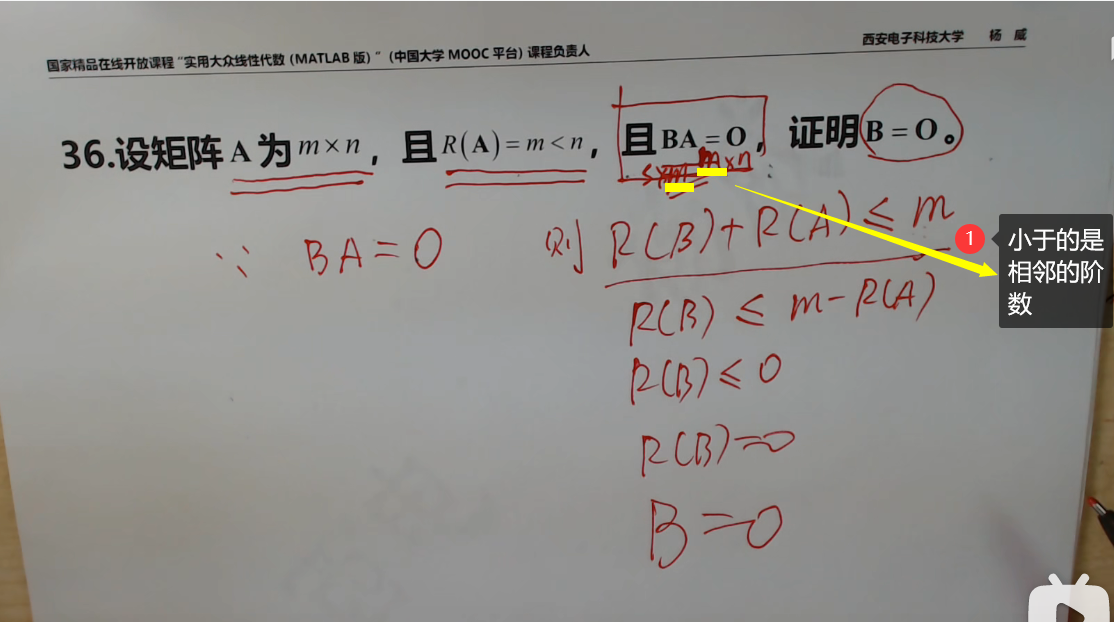 国家精品在线开放课程“实用大众线性代数（MATLAB版）”（中国大学MOOC平台）课程负责人
西安电子科技大学 杨 威
36.设矩阵 A 为 m×n，且 R(A)=m<n，且 BA=O，证明 B=O。
s×m m×n
∵ BA=0 则 R(B)+R(A)≤m
1 小于的是
相邻的阶
数
R(B)≤m-R(A)
R(B)≤0
R(B)=0
B=0